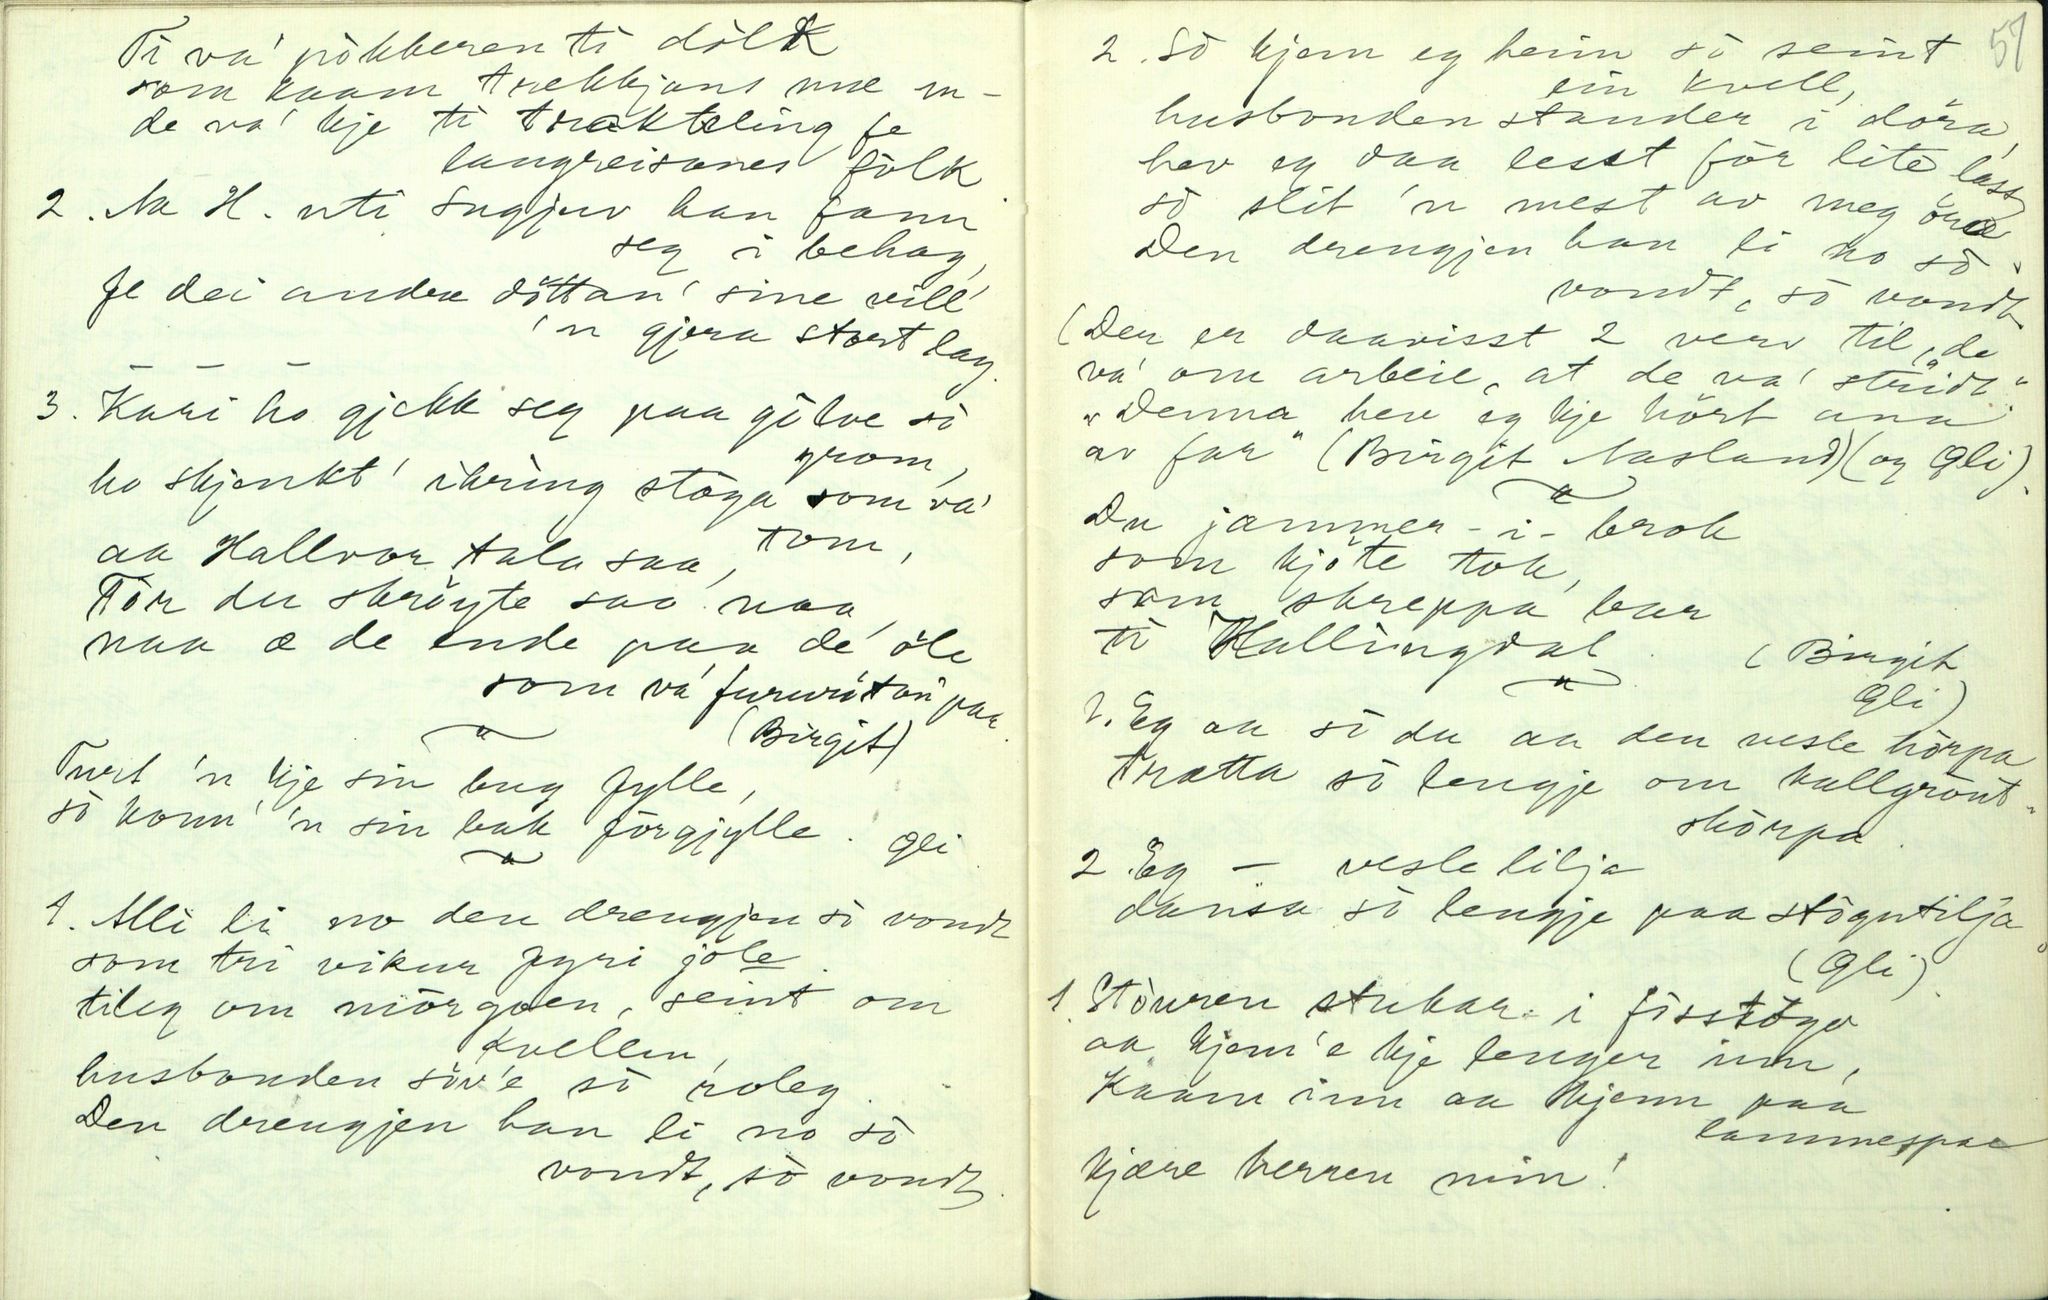 Ti va' pòkkeren ti dòlk
som kaam trekkjans mæ en -
de va' kje ti trakteling fe
langreisanes fòlk
2. Na H. uti Sugjuv han fann
seg i behag,
fe dei andre döttan' sine vill'
'n gjera stort lag.
— — —
3. Kari ho gjekk seg paa gòlve sò
grom,
ho skjenkt' ikring stoga som va'
tom,
aa Hallvor tala saa,
Tòr du skröyte saa naa,
naa æ de ende paa de öle
som va' furuvòtan paa
(Birgit)
Turt 'n kje sin bug fylle,
sò konn' 'n sin bak fòrgjylle. Gli
1. Alli li no den drengjen sò vondt
som tri vikur fyri jole.
tileg om mòrgoen, seint om
kvellen,
husbonden söv'e sò roleg.
Den drengjen han li no sò
vondt, sò vondt.
57
2. Sò kjem eg heim sò seint
ein kvell,
husbonden stander i döra,
hev eg daa lesst fòr lite lass
sò slit 'n mest av meg öyra
Den drengjen han li no sò
vondt, sò vondt
(Der er daavisst 2 vers til, de
va' om arbeie, at de va' "stridt"
"Denna hev eg kje hört ana
av far" (Birgit Nasland) (og Gli).
Du jammer - i - brok
som kjöte tok,
som skreppa bar
ti Hallingdal. (Birgit
Gli)
1. Eg aa sò du aa den vesle hörpa
trætta sò lengje om kallgraut-
skörpa.
2. Eg — vesle lilja
dansa sò lengje paa stogutilja
(Gli).
1. Stòuren stukar i fisstògo
aa kjem'e kje lenger inn,
Kaam inn aa kjenn paa
lammespae
kjære herren min!